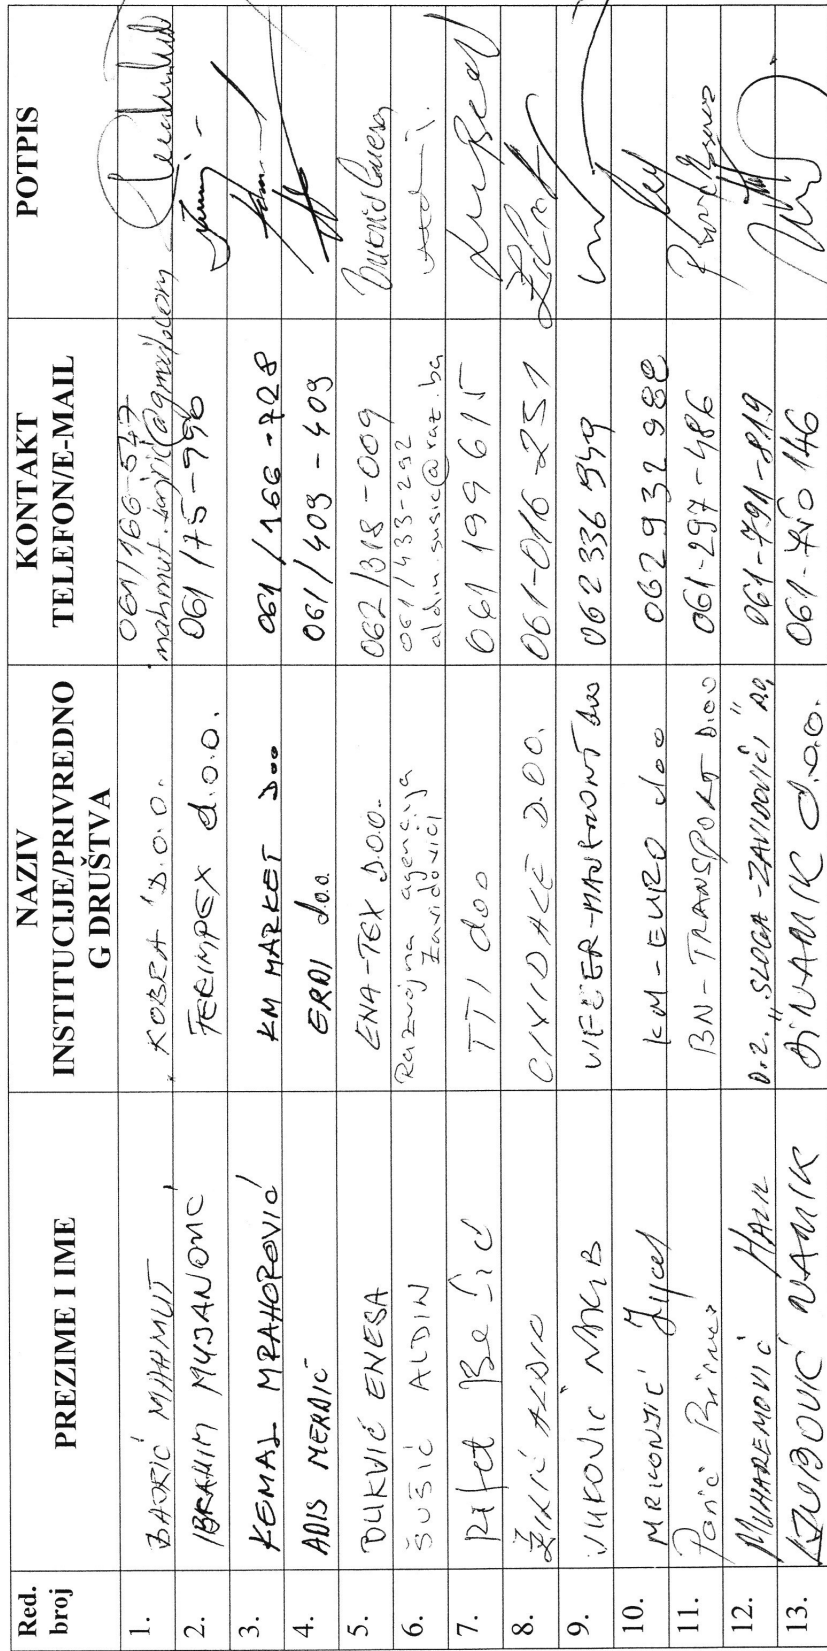 Red. broj PREZIME I IME NAZIV INSTITUCIJE/PRIVREDNO G DRUŠTVA KONTAKT TELEFON/E-MAIL POTPIS
1. BAJRIĆ MAHMUT KOBRA D.O.O. 061/166-547
mahmut.bajric@gmail.com
2. IBRAHIM MUJANOVIC FERIMPEX d.o.o. 061 175-996
3. KEMAL MRAHOROVIĆ KM MARKET Doo 061/166-728
4. ADIS MERDIĆ ERDI d.o.o. 061/409-409
5. ĐUKVIĆ ENESA ENA-TEX D.O.O. 062/318-009
6. ŠUŠIĆ ALDIN Razvojna agencija Zavidovići 061/433-292
aldin.susic@raz.ba
7. Rifet Bešić TTI doo 061 199 615
8. ŽILIĆ ALDIN CIVIDALE D.O.O. 061-016-251
9. VUKOVIĆ 062 336 949
10. MRKONJIĆ KM-EURO doo 062 932 988
11. BN-TRANSPORT D.O.O 061-297-486
12. MUHAREMOVIĆ D.Z. "SLOGA-ZAVIDOVIĆI" 061-791-819
13. NAMIK DINAMIK d.o.o. 146